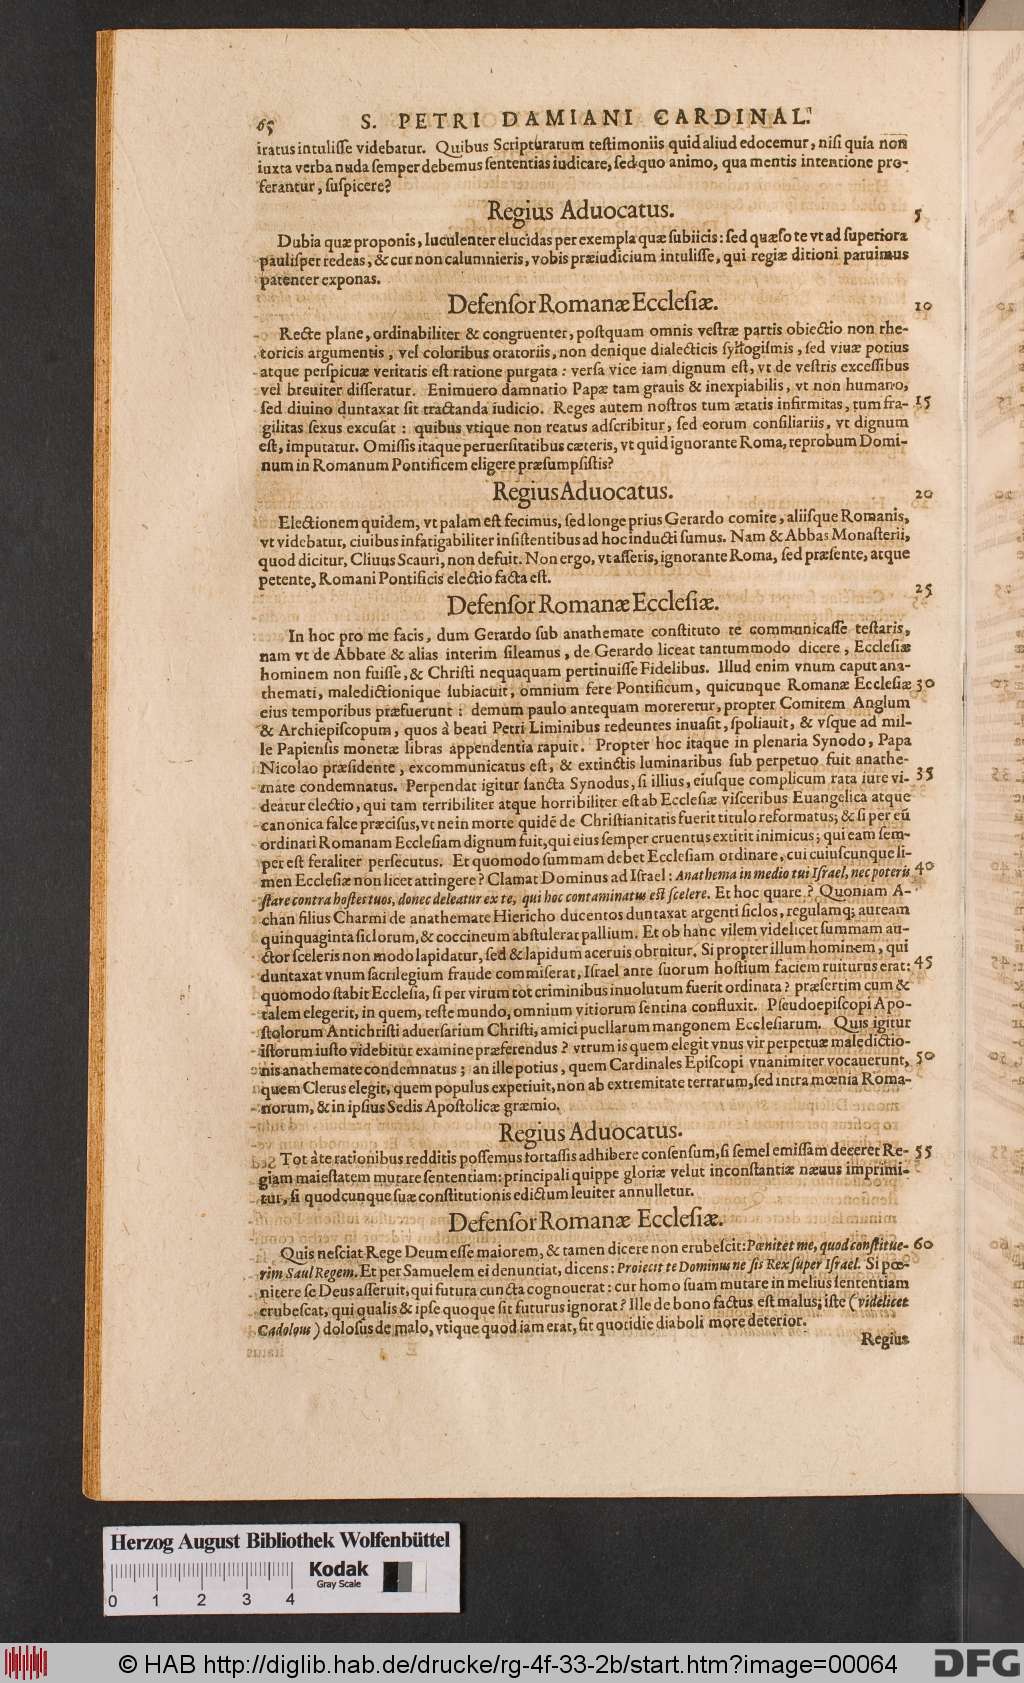 65 S. PETRI DAMIANI CARDINAL.
iratus intulisse videbatur. Quibus Scripturarum testimoniis quid aliud edocemur, nisi quia non
iuxta verba nuda semper debemus sententias iudicare, sed quo animo, qua mentis intentione pro-
ferantur, suspicere?
Regius Aduocatus. 5
Dubia quæ proponis, luculenter elucidas per exempla quæ subiicis: sed quæso te vt ad superiora
paulisper redeas, & cur non calumnieris, vobis præiudicium intulisse, qui regiæ ditioni paruimus
patenter exponas.
Defensor Romanæ Ecclesiæ. 10
Recte plane, ordinabiliter & congruenter, postquam omnis vestræ partis obiectio non rhe-
toricis argumentis, vel coloribus oratoriis, non denique dialecticis syllogismis, sed viuæ potius
atque perspicuæ veritatis est ratione purgata: versa vice iam dignum est, vt de vestris excessibus
vel breuiter disseratur. Enimuero damnatio Papæ tam grauis & inexpiabilis, vt non humano,
sed diuino duntaxat sit tractanda iudicio. Reges autem nostros tum ætatis infirmitas, tum fra- 15
gilitas sexus excusat: quibus vtique non reatus adscribitur, sed eorum consiliariis, vt dignum
est, imputatur. Omissis itaque peruersitatibus cæteris, vt quid ignorante Roma, reprobum Domi-
num in Romanum Pontificem eligere præsumpsistis?
Regius Aduocatus. 20
Electionem quidem, vt palam est fecimus, sed longe prius Gerardo comite, aliisque Romanis,
vt videbatur, ciuibus infatigabiliter insistentibus ad hoc inducti sumus. Nam & Abbas Monasterii,
quod dicitur, Cliuus Scauri, non defuit. Non ergo, vt asseris, ignorante Roma, sed præsente, atque
petente, Romani Pontificis electio facta est.
Defensor Romanæ Ecclesiæ. 25
In hoc pro me facis, dum Gerardo sub anathemate constituto te communicasse testaris,
nam vt de Abbate & alias interim sileamus, de Gerardo liceat tantummodo dicere, Ecclesiæ
hominem non fuisse, & Christi nequaquam pertinuisse Fidelibus. Illud enim vnum caput ana-
themati, maledictionique subiacuit, omnium fere Pontificum, quicunque Romanæ Ecclesiæ 30
eius temporibus præfuerunt: demum paulo antequam moreretur, propter Comitem Anglum
& Archiepiscopum, quos à beati Petri Liminibus redeuntes inuasit, spoliauit, & vsque ad mil-
le Papiensis monetæ libras appendentia rapuit. Propter hoc itaque in plenaria Synodo, Papa
Nicolao præsidente, excommunicatus est, & extinctis luminaribus sub perpetuo fuit anathe-
mate condemnatus. Perpendat igitur sancta Synodus, si illius, eiusque complicum rata iure vi- 35
deatur electio, qui tam terribiliter atque horribiliter est ab Ecclesiæ visceribus Euangelica atque
canonica falce præcisus, vt ne in morte quidē de Christianitatis fuerit titulo reformatus; & si per eū
ordinari Romanam Ecclesiam dignum fuit, qui eius semper cruentus extitit inimicus; qui eam sem-
per est feraliter persecutus. Et quomodo summam debet Ecclesiam ordinare, cui cuiuscunque li-
men Ecclesiæ non licet attingere? Clamat Dominus ad Israel: Anathema in medio tui Israel, nec poteris 40
stare contra hostes tuos, donec deleatur ex te, qui hoc contaminatus est scelere. Et hoc quare? Quoniam A-
chan filius Charmi de anathemate Hiericho ducentos duntaxat argenti siclos, regulamq; auream
quinquaginta siclorum, & coccineum abstulerat pallium. Et ob hanc vilem videlicet summam au-
ctor sceleris non modo lapidatur, sed & lapidum aceruis obruitur. Si propter illum hominem, qui
duntaxat vnum sacrilegium fraude commiserat, Israel ante suorum hostium faciem ruiturus erat: 45
quomodo stabit Ecclesia, si per virum tot criminibus inuolutum fuerit ordinata? præsertim cum &
talem elegerit, in quem, teste mundo, omnium vitiorum sentina confluxit. Pseudoepiscopi Apo-
stolorum Antichristi aduersarium Christi, amici puellarum mangonem Ecclesiarum. Quis igitur
istorum iusto videbitur examine præferendus? vtrum is quem elegit vnus vir perpetuæ maledictio-
nis anathemate condemnatus; an ille potius, quem Cardinales Episcopi vnanimiter vocauerunt, 50
quem Clerus elegit, quem populus expetiuit, non ab extremitate terrarum, sed intra mœnia Roma-
norum, & in ipsius Sedis Apostolicæ græmio.
Regius Aduocatus.
Tot à te rationibus redditis possemus fortassis adhibere consensum, si semel emissam deceret Re- 55
giam maiestatem mutare sententiam: principali quippe gloriæ velut inconstantiæ næuus imprimi-
tur, si quodcunque suæ constitutionis edictum leuiter annulletur.
Defensor Romanæ Ecclesiæ.
Quis nesciat Rege Deum esse maiorem, & tamen dicere non erubescit: Pœnitet me, quod constitue- 60
rim Saul Regem. Et per Samuelem ei denuntiat, dicens: Proiecit te Dominus ne sis Rex super Israel. Si pœ-
nitere se Deus asseruit, qui futura cuncta cognouerat: cur homo suam mutare in melius sententiam
erubescat, qui qualis & ipse quoque sit futurus ignorat? Ille de bono factus est malus; iste (videlicet
Cadolous) dolosus de malo, vtique quod iam erat, fit quotidie diaboli more deterior.
Regius
Herzog August Bibliothek Wolfenbüttel
Kodak
Gray Scale
0 1 2 3 4
© HAB http://diglib.hab.de/drucke/rg-4f-33-2b/start.htm?image=00064
DFG